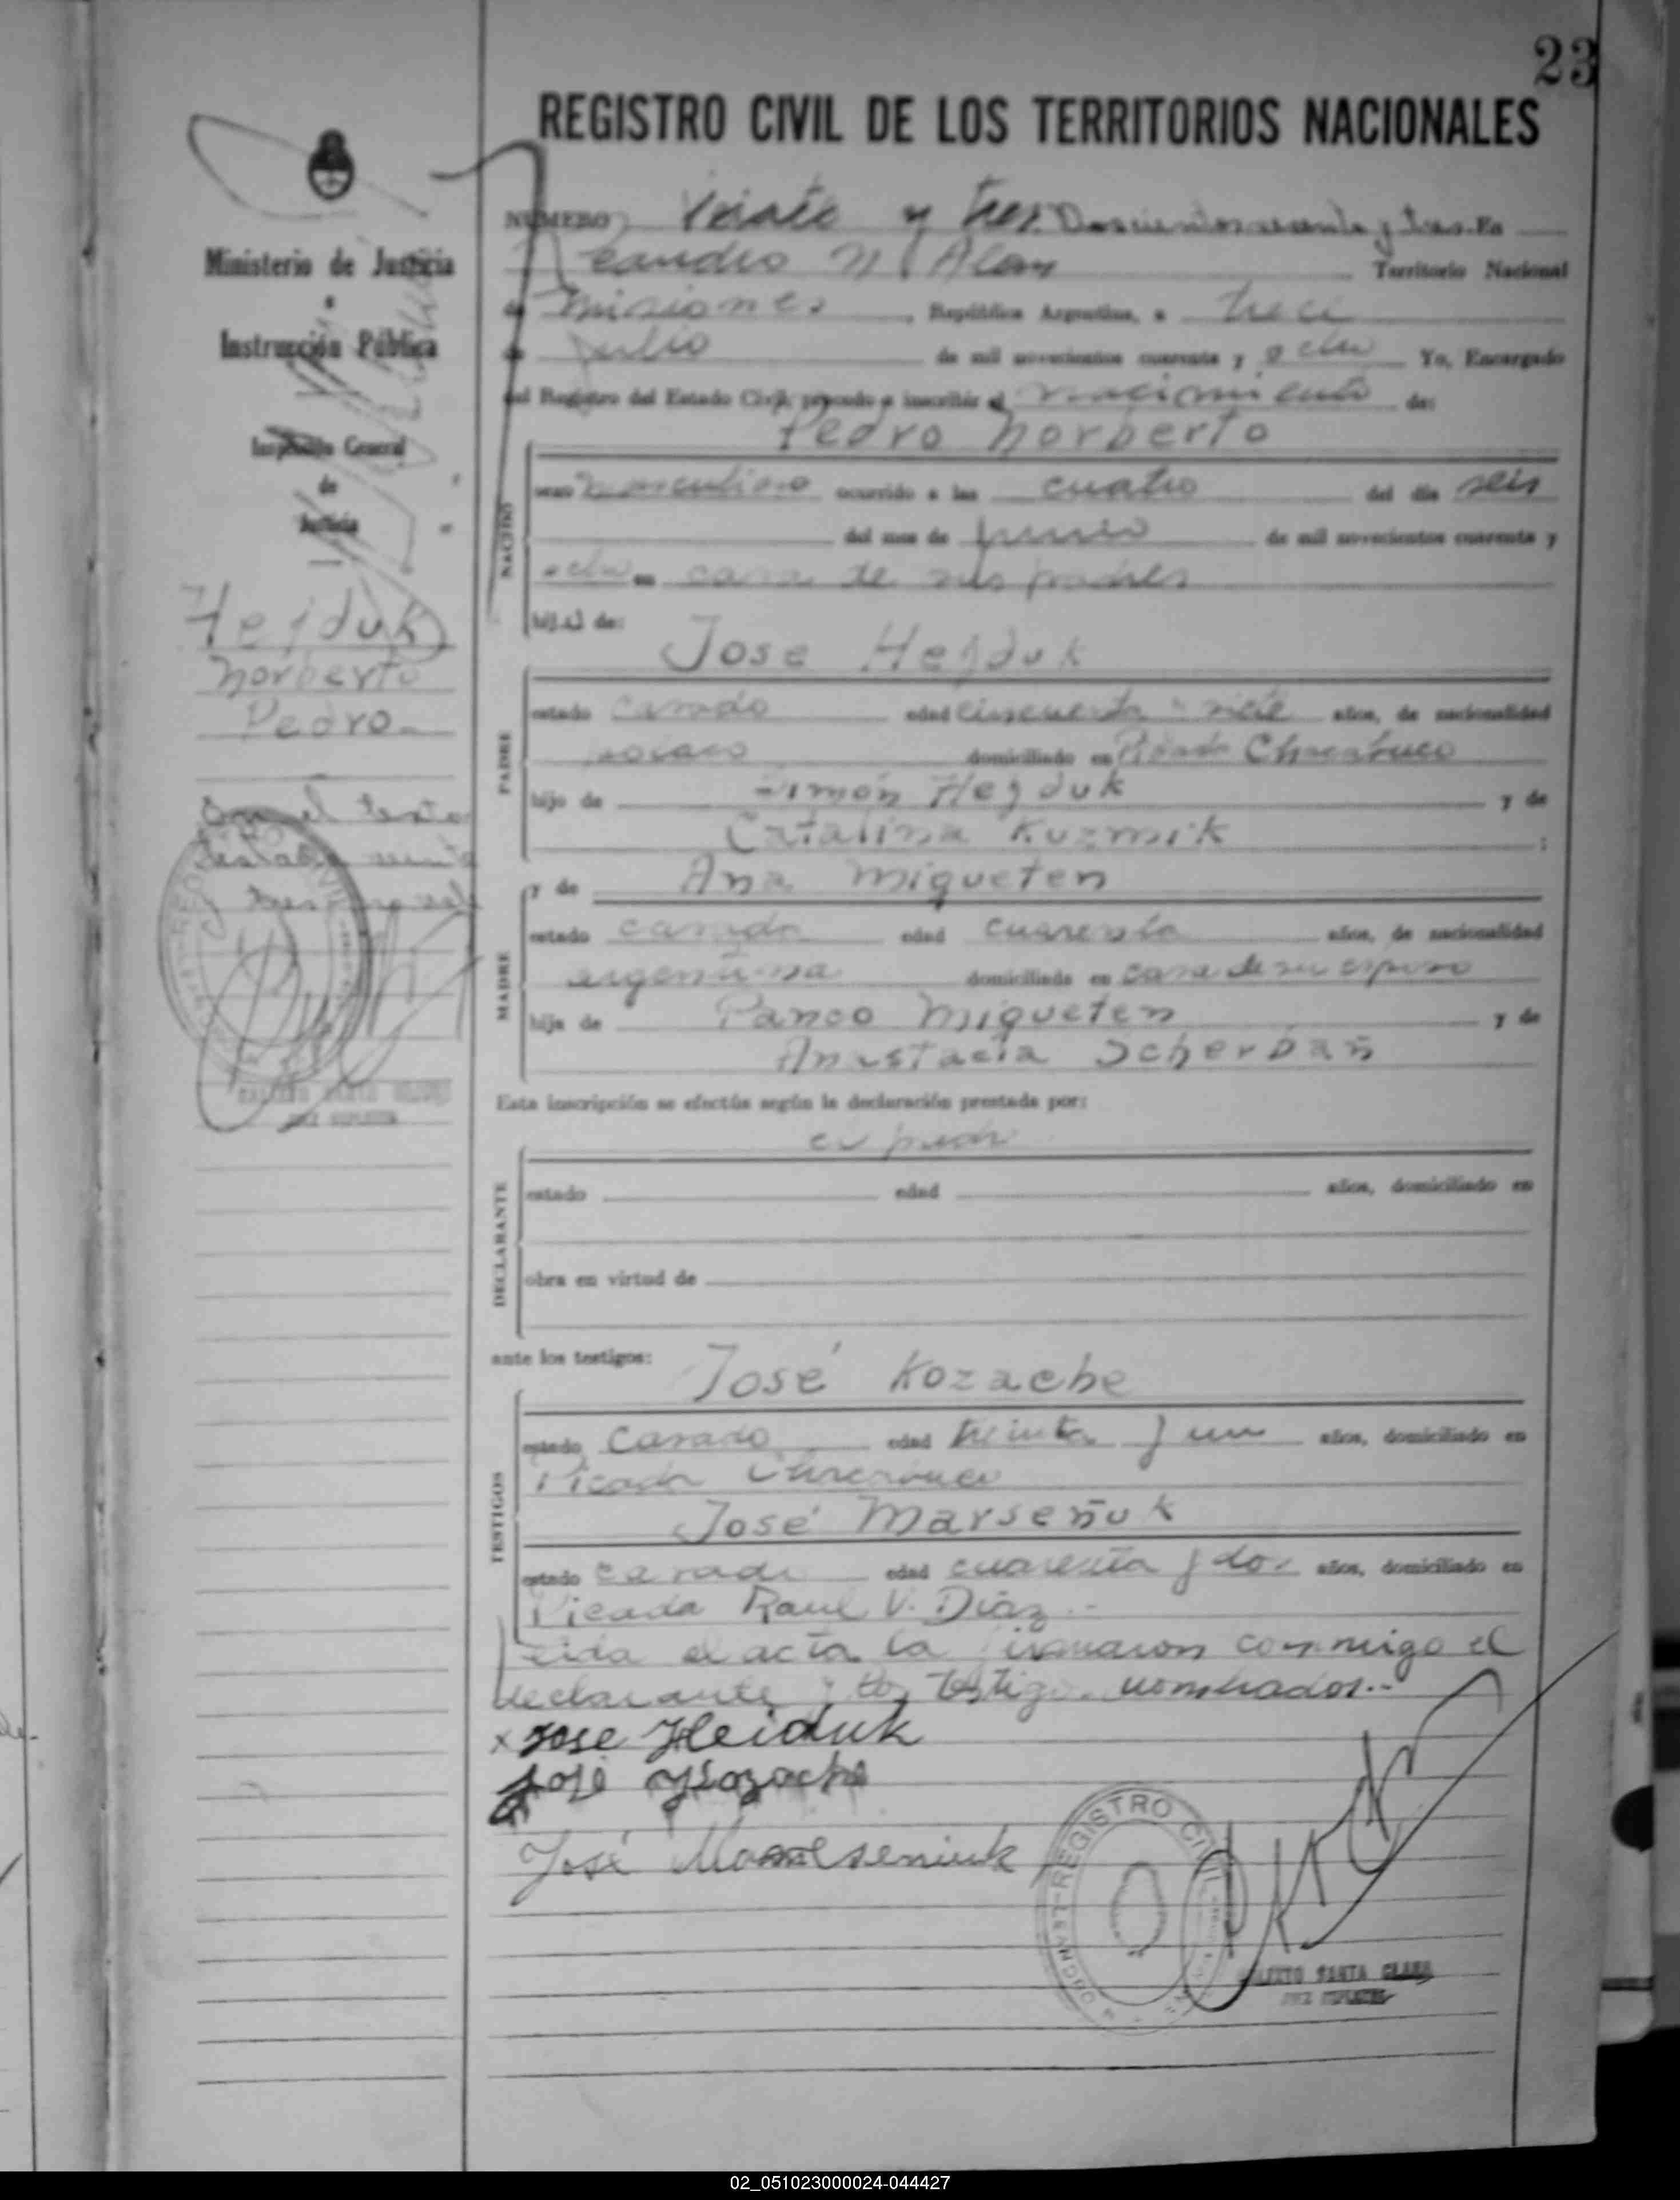 23
REGISTRO CIVIL DE LOS TERRITORIOS NACIONALES
Ministerio de Justicia
e
Instrucción Pública
Inspección General
de
Justicia
Hejduk
Norberto
Pedro.-
En el testa
NÚMERO Veinte y tres. En
Leandro N. Alem Territorio Nacional
de Misiones, República Argentina, a trece
de Julio de mil novecientos cuarenta y ocho Yo, Encargado
del Registro del Estado Civil, procedo a inscribir el nacimiento de:
Pedro Norberto
NACIDO
sexo masculino ocurrido a las cuatro del día seis
del mes de junio de mil novecientos cuarenta y
ocho en casa de sus padres
hij de:
Jose Hejduk
PADRE
estado casado edad cincuenta y siete años, de nacionalidad
polaco domiciliado en Picada Chacabuco
hijo de Simón Hejduk y de
Catalina Kuzmik ;
MADRE
y de Ana Miqueten
estado casada edad cuarenta años, de nacionalidad
argentina domiciliada en casa de su esposo
hija de Panco Miqueten y de
Anastacia Scherbañ
Esta inscripción se efectúa según la declaración prestada por:
el padre
DECLARANTE
estado edad años, domiciliado en
obra en virtud de
ante los testigos:
José Kozache
TESTIGOS
estado casado edad treinta y un años, domiciliado en
Picada Chacabuco
José Marseñuk
estado casado edad cuarenta y dos años, domiciliado en
Picada Raul V. Diaz.-
Leida el acta la firmaron conmigo el
declarante y los testigos nombrados.-
x Jose Heiduk
José Kozache
José Marseniuk
REGISTRO CIVIL
SANTA CLARA
JUEZ SUPLENTE
02_051023000024-044427